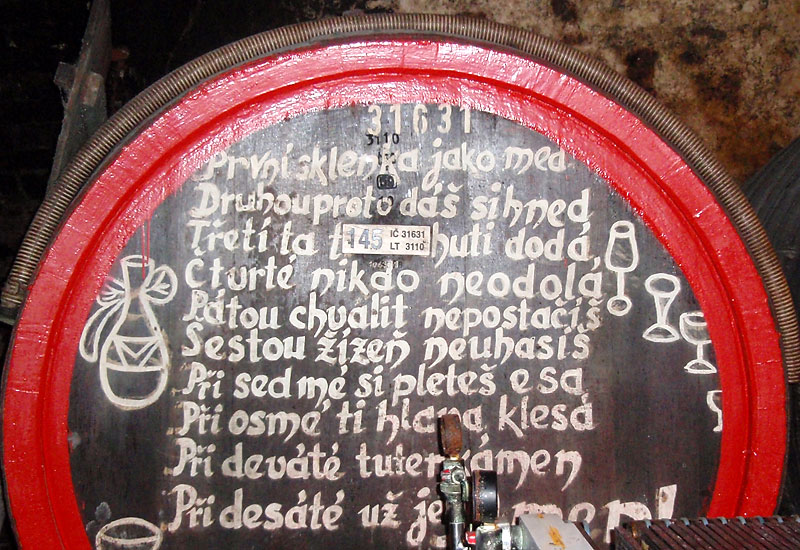 31631
3110
První sklenka jako med
Druhou proto dáš si hned
145 IČ 31631
LT 3110
Třetí ta chuti dodá,
Čtvrté nikdo neodolá,
Pátou chválit nepostačíš
Šestou žízeň neuhasíš
Při sedmé si pleteš esa
Při osmé ti hlava klesá
Při deváté tuten
Při desáté už je